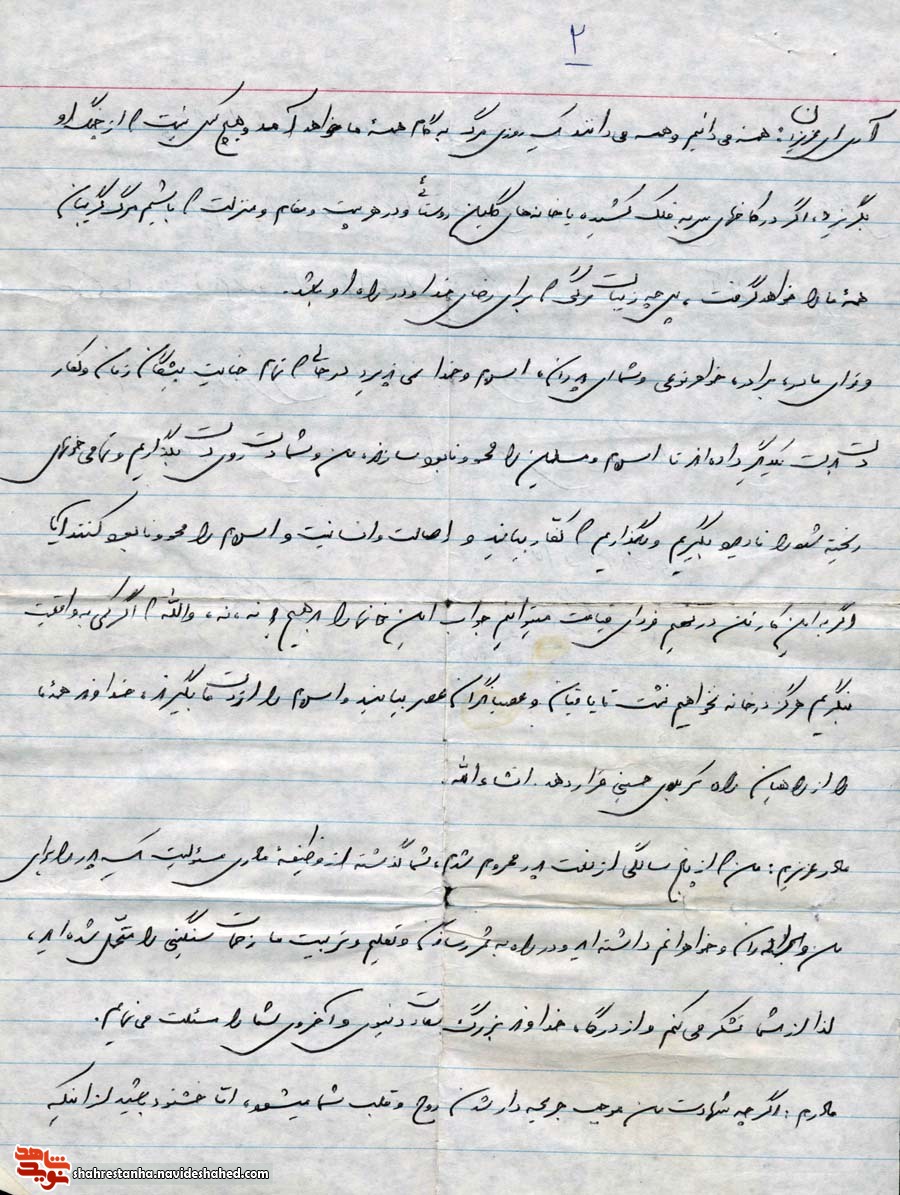 ۲
آری ای عزیزان: همه می دانیم و همه می دانند که روزی مرگ به گام همهٔ ما خواهد آمد و هیچ کس نیست که از چنگ او
بگریزد، اگر در کاخهای سر به فلک کشیده یا خانه‌های گلین روستائی و در هر پست و مقام و منزلت که باشیم مرگ گریبان
همهٔ ما را خواهد گرفت، پس چه زیباست مرگی که برای رضای خدا و در راه او باشد.
و ترا ای مادر، برادر، خواهر نوعی و شما ای پدران، اسلام و خدا نمی پذیرد در حالی که تمام جنایت پیشگان زمان و کفار
دست بدست یکدیگر داده‌اند تا اسلام و مسلمین را محو و نابود سازند، من و شما دست روی دست بگذاریم و تمامی خونهای
ریخته شده را نادیده بگیریم و بگذاریم که کفار بیایند و اصالت و انسانیت و اسلام را محو و نابود کنند آیا
اگر به این کار تن در دهیم فردای قیامت میتوانیم جواب این را بدهیم؟ نه، نه، والله که اگر کمی به واقعیت
بنگریم هرگز در خانه نخواهیم نشست تا یاغیان و عصیانگران عصر بیایند و اسلام را از دست ما بگیرند، خداوند همهٔ ما
را از راهیان راه کربلای حسینی قرار دهد. انشاءالله.
مادر عزیزم: من که از پنج سالگی از نعمت پدر محروم شدم، شما گذشته از وظیفهٔ مادری مسئولیت یک پدر را برای
من و برادران و خواهرانم داشته‌اید و در راه به ثمر رساندن و تعلیم و تربیت ما زحمات سنگینی را متحمل شده‌اید،
لذا از شما تشکر می کنم و از درگاه خداوند بزرگ سعادت دنیوی و اخروی شما را مسئلت می نمایم.
مادرم: اگر چه شهادت من موجب جریحه دار شدن روح و قلب شما میشود، اما خشنود باشید از اینکه
نوید شاهد
shahrestanha.navideshahed.com